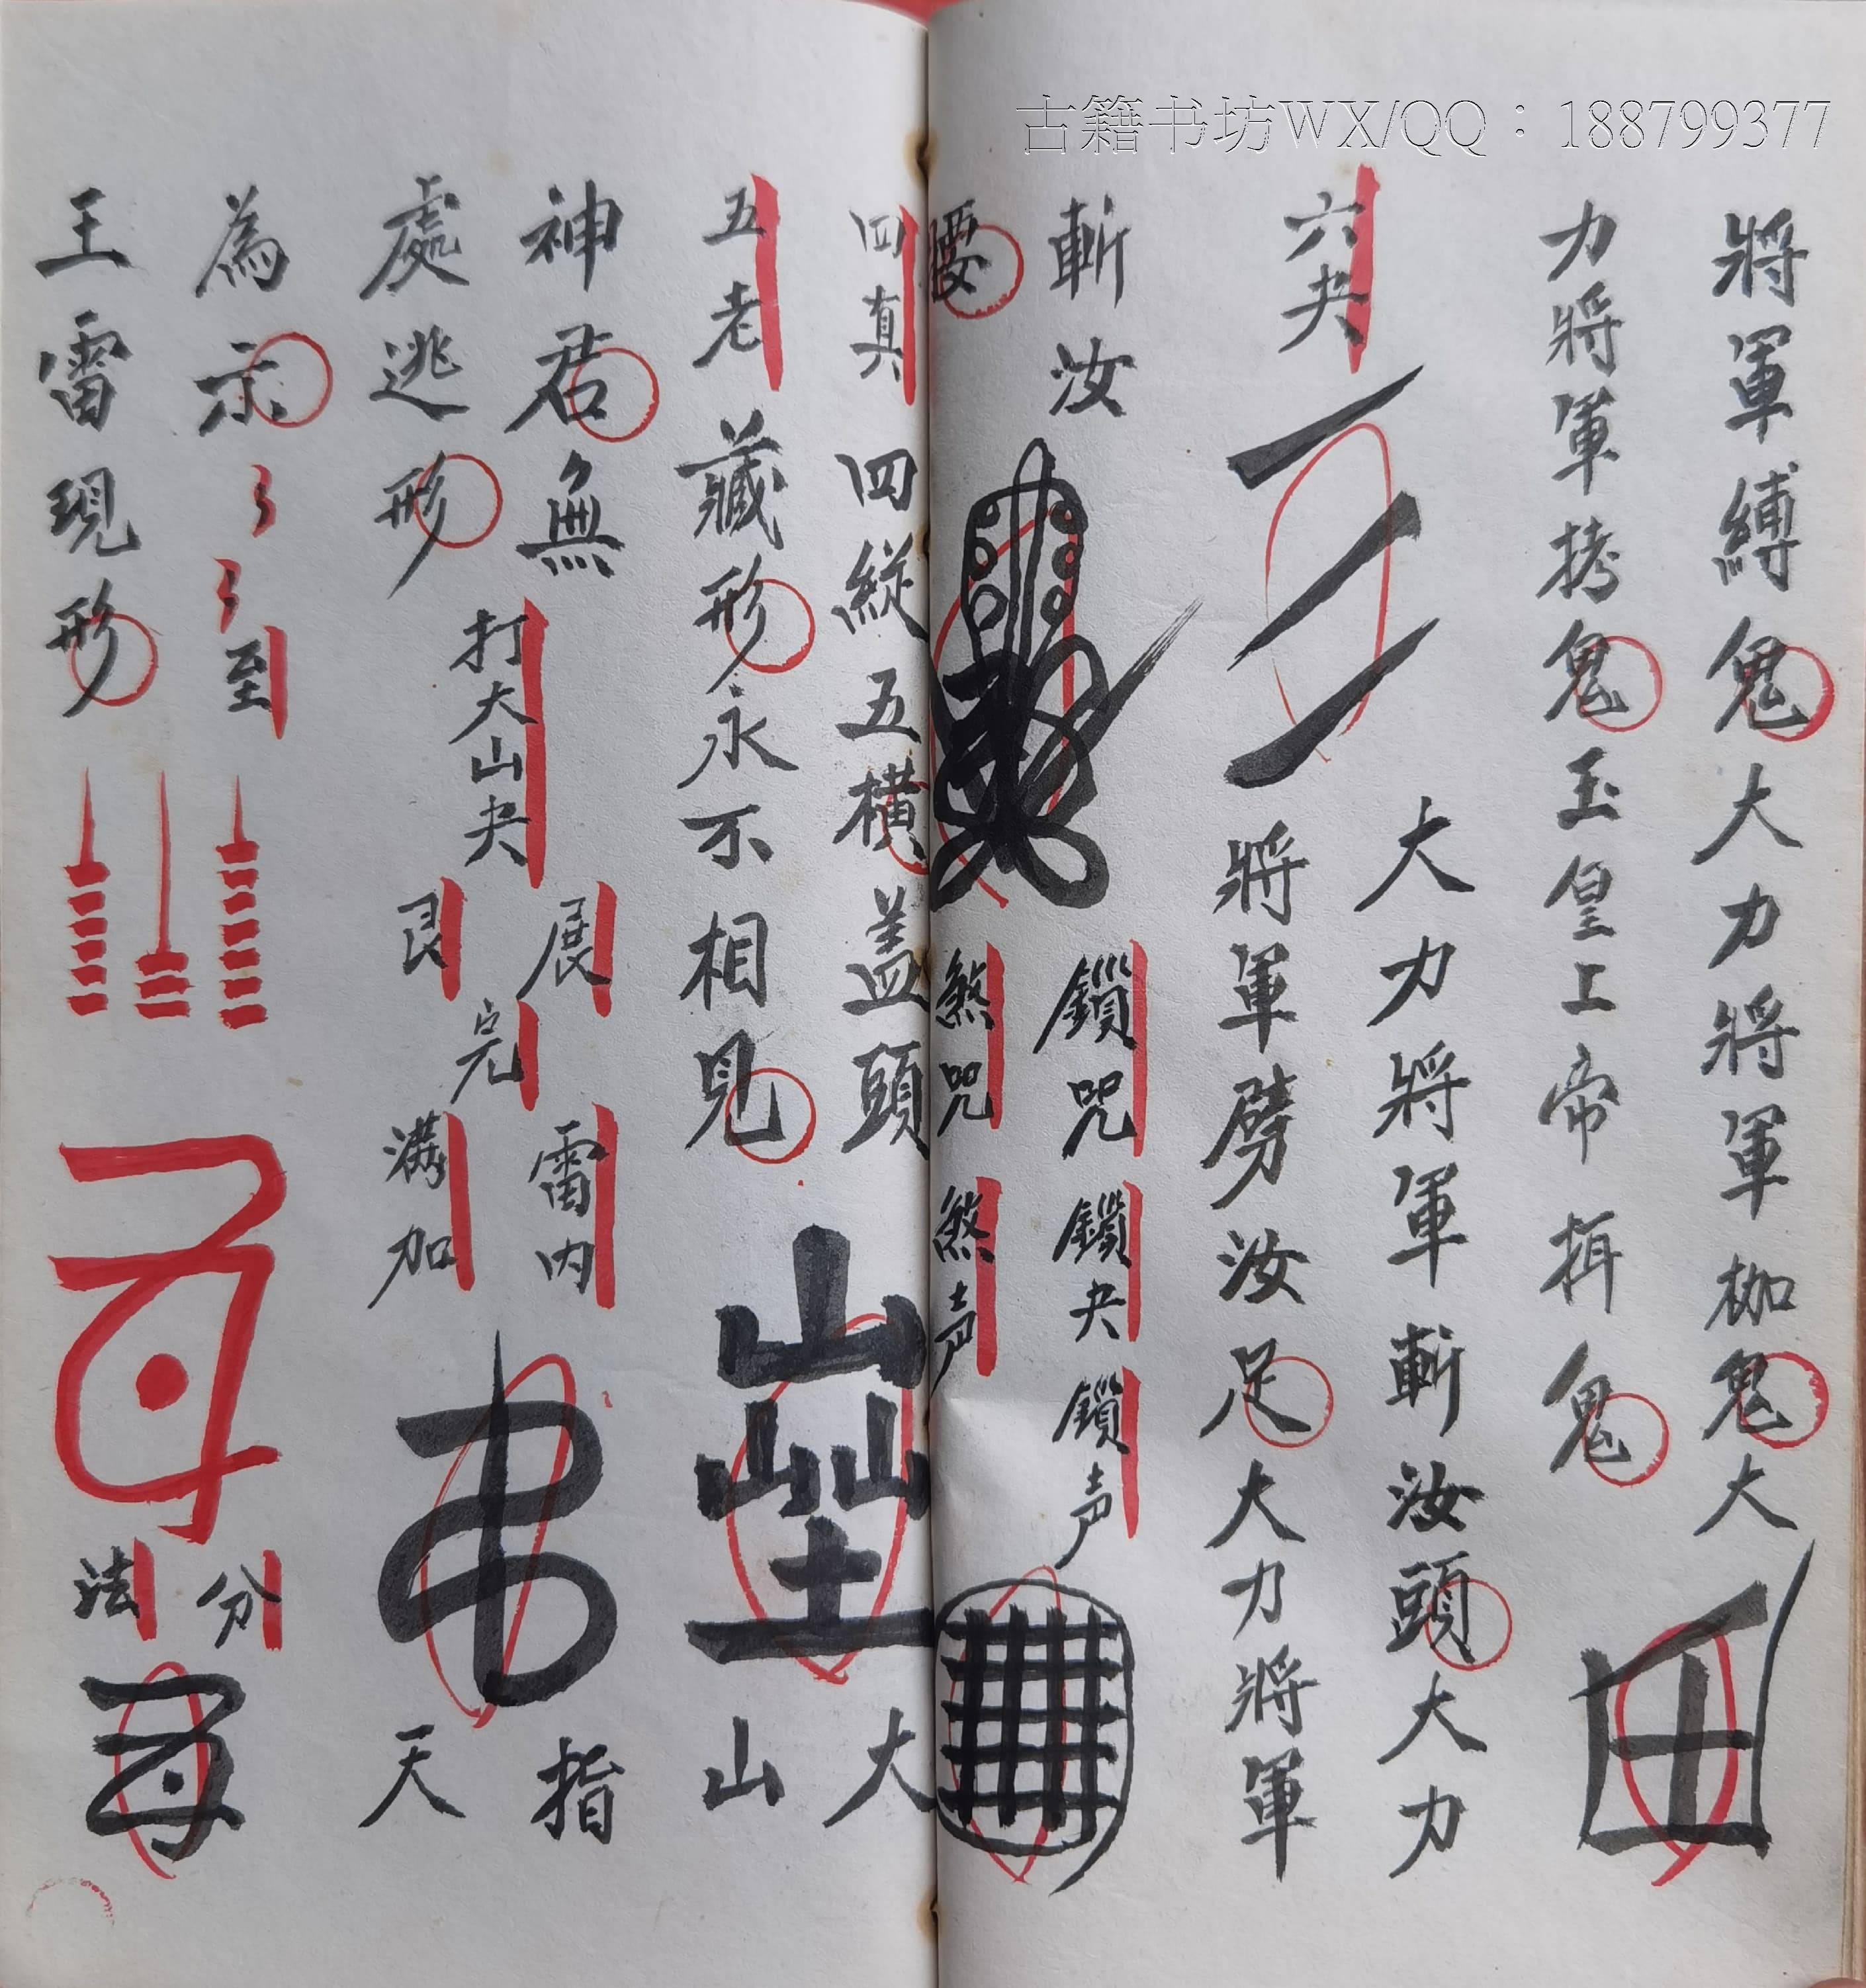 古籍书坊WX/QQ：188799377
將軍縛鬼大力將軍枷鬼大
力將軍拷鬼玉皇上帝揖鬼
六夬
大力將軍斬汝頭大力
將軍劈汝足大力將軍
斬汝
腰
鎖咒
煞咒
鎖夬
煞声
鎖声
四真
四縱五橫蓋頭
五老
藏形永不相見
大
山
神君無
處逃形
打大山夬
展
艮
完
雷内
满加
指
天
為示
至
王雷現形
分
法